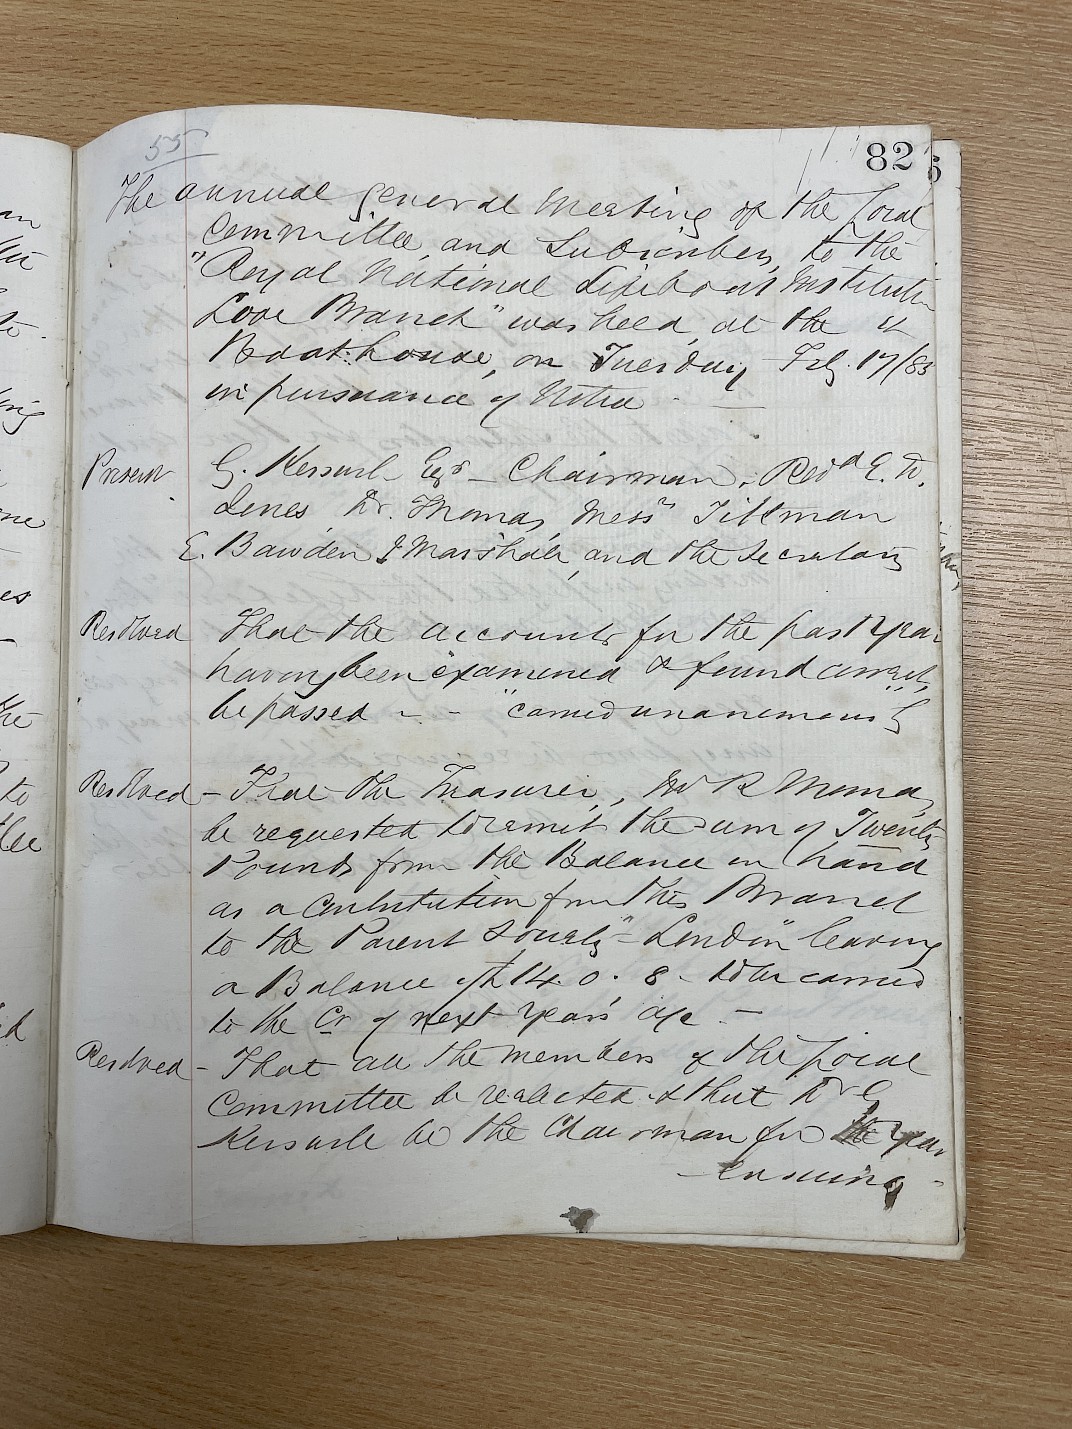 55
82
The annual general Meeting of the Local
Committee, and Subscribers, to the
"Royal National Lifeboat Institution
Looe Branch" was held, at the
Boathouse, on Tuesday Feby. 17/83
in pursuance of Notice
Present
G. Kerswell Esqr - Chairman, Revd E. W.
Jenes, Dr. Thomas, Messrs Tillman
E. Bawden & Marshall, and the Secretary
Resolved That the accounts for the past year
having been examined & found correct,
be passed - - "carried unanimously"
Resolved - That the Treasurer, Mr R Thomas,
be requested to remit the sum of Twenty
Pounds from the Balance in hand
as a Contribution from this Branch
to the Parent Society - London" leaving
a Balance of £14. 0. 8 - to be carried
to the Cr of next Year's a/c. -
Resolved - That all the members of the Local
Committee be reelected & that Dr G
Kerswell be the Chairman for the year
ensuing -